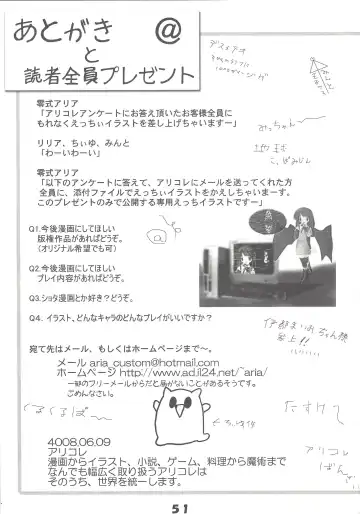 あとがき @
と
読者全員プレゼント
零式アリア
「アリコレアンケートにお答え頂いたお客様全員に
もれなくえっちぃイラストを差し上げちゃいますー」
リリア、ちぃゆ、みんと
「わーいわーい」
零式アリア
「以下のアンケートに答えて、アリコレにメールを送ってくれた方
全員に、添付ファイルでえっちぃイラストをかえしちゃいまーす。
このプレゼントのみで公開する専用えっちイラストですー」
Q1.今後漫画にしてほしい
版権作品があればどうぞ。
（オリジナル希望でも可）
Q2.今後漫画にしてほしい
プレイ内容があればどうぞ。
Q3.ショタ漫画とか好き？どうぞ。
Q4．イラスト、どんなキャラのどんなプレイがいいですか？
宛て先はメール、もしくはホームページまで～、
メール aria_custom@hotmail.com
ホームページ http://www.ad.il24.net/~aria/
一部のフリーメールからだと届かないことがあるそうです。
ごめんなさい。
たすけて
アリコレ
ばんざい
4008.06.09
アリコレ
漫画からイラスト、小説、ゲーム、料理から魔術まで
なんでも幅広く取り扱うアリコレは
そのうち、世界を統一します。
51